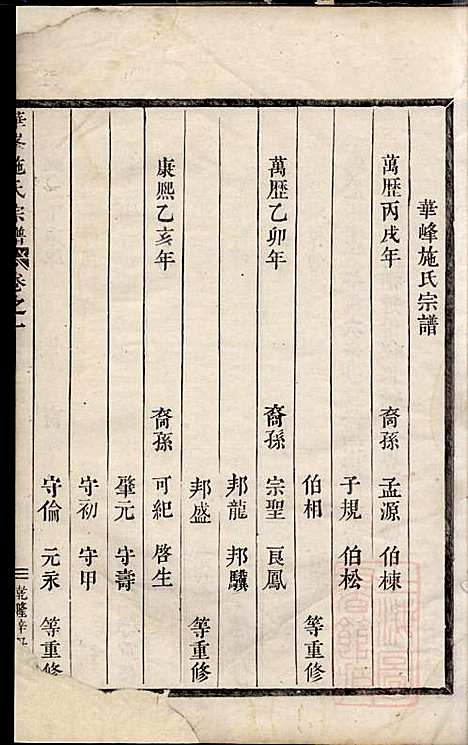 華峰施氏宗譜
萬歷丙戌年 裔孫 孟源 伯棟
子規 伯松
伯相 等重修
萬歷乙卯年 裔孫 宗聖 良鳳
邦龍 邦驥
邦盛 等重修
康熙乙亥年 裔孫 可紀 啓生
肇元 守壽
守初 守甲
守倫 元永 等重修
華峯施氏宗譜 卷之一 乾隆辛